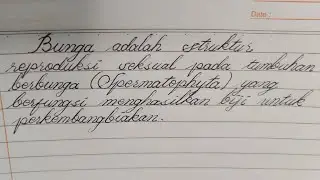 Date:
Bunga adalah struktur
reproduksi seksual pada tumbuhan
berbunga (Spermatophyta) yang
berfungsi menghasilkan biji untuk
perkembangbiakan.